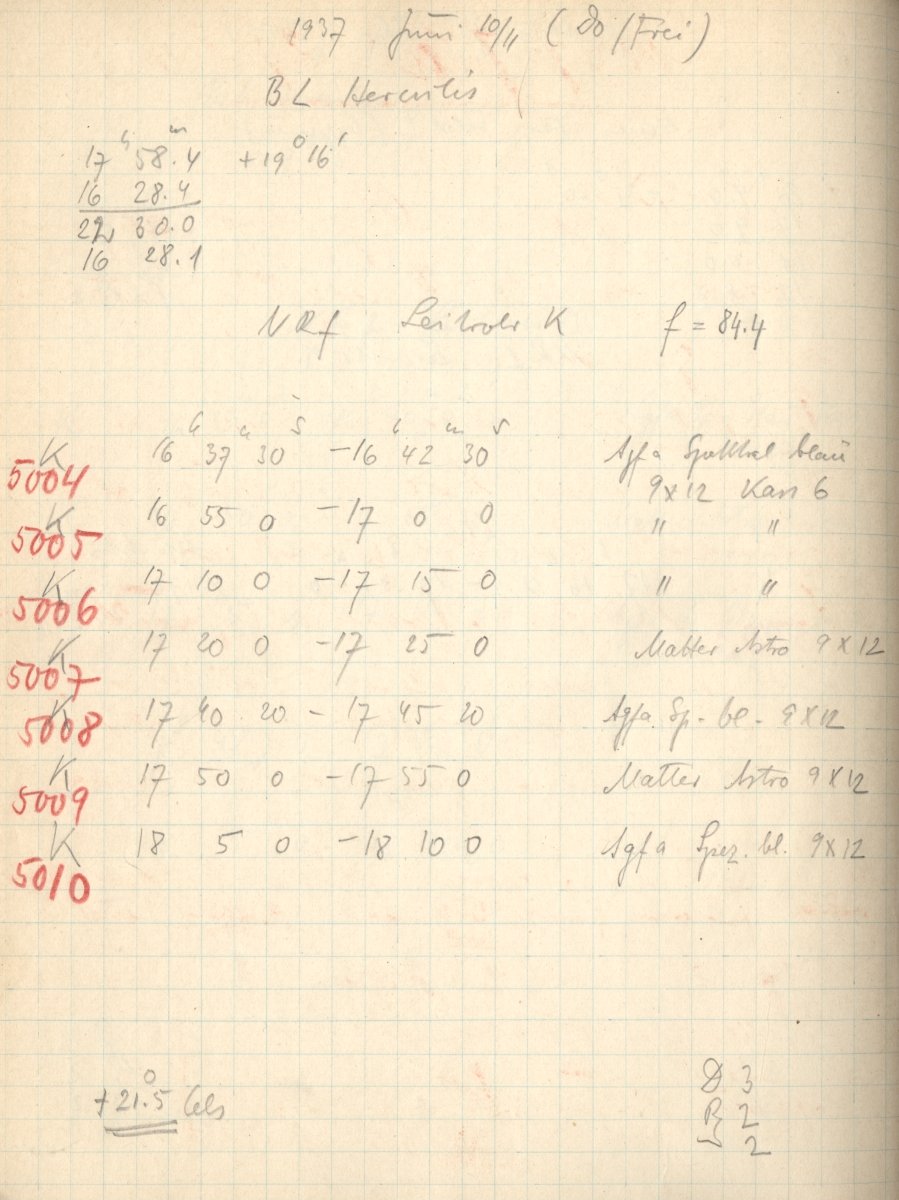 1937 Juni 10/11 (Do/Frei)
BL Herculis
17ʰ 58ᵐ.4 +19° 16'
16 28.4
22 30.0
16 28.1
NRf Leitrohr K f = 84.4
K 5004 16ʰ 37ᵐ 30ˢ - 16ʰ 42ᵐ 30ˢ Agfa Spektral blau
9x12 Kass 6
K 5005 16 55 0 - 17 0 0 " "
K 5006 17 10 0 - 17 15 0 " "
K 5007 17 20 0 - 17 25 0 Matter Astro 9x12
K 5008 17 40 20 - 17 45 20 Agfa Sp. bl. 9x12
K 5009 17 50 0 - 17 55 0 Matter Astro 9x12
K 5010 18 5 0 - 18 10 0 Agfa Spez. bl. 9x12
+21°.5 Cels
D 3
R 2
2